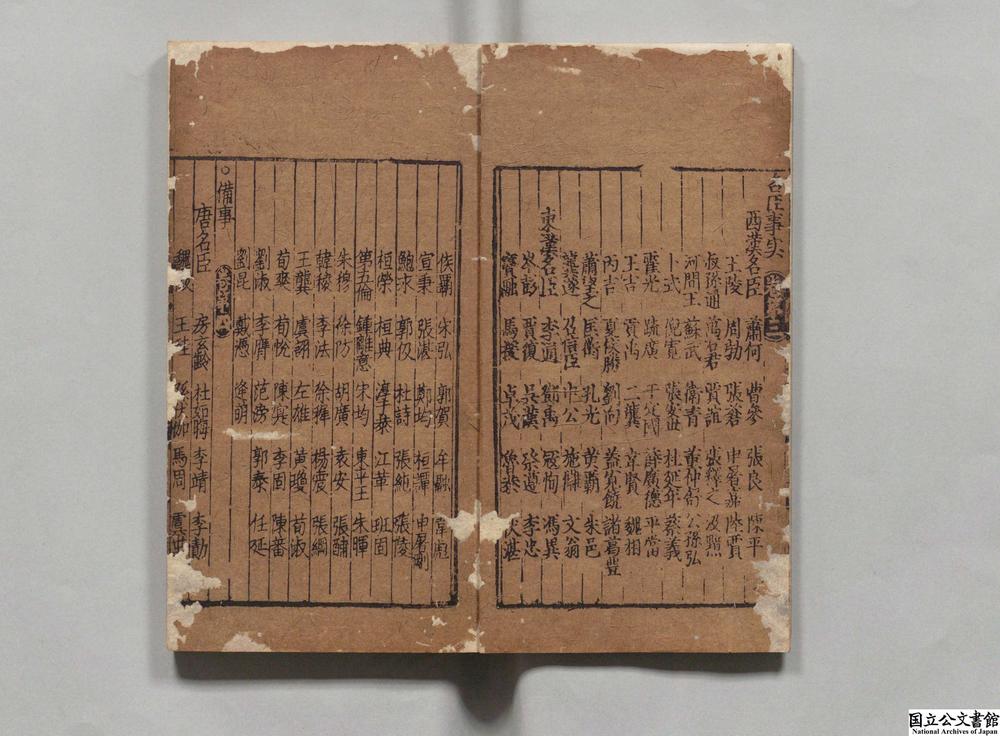 名臣事実
西漢名臣 蕭何 曹參 張良 陳平
王陵 周勃 張蒼 申屠嘉 陸賈
叔孫通 萬石君 賈誼 張釋之 汲黯
河間王 蘇武 衛青 董仲舒 公孫弘
卜式 倪寛 張安世 杜延年 蔡義
霍光 疏廣 于定國 薛廣德 平當
王吉 貢禹 二龔 韋賢 魏相
丙吉 夏侯勝 劉向 盖寬饒 諸葛豐
蕭望之 匡衡 孔光 黄霸 朱邑
龔遂 召信臣 丰公 施讎 文翁
東漢名臣 李通 鄧禹 冦恂 馮異
岑彭 賈復 吳漢 祭遵 李忠
竇融 馬援 卓茂 魯恭 伏湛
侯霸 宋弘 郭賀 牟融 韋彪
宣秉 張湛 鄭均 桓譚 申屠剛
鮑永 郭伋 杜詩 張純 張陵
桓榮 桓典 淳于恭 江革 班固
第五倫 鍾離意 宋均 東平王 朱暉
朱穆 徐防 胡廣 袁安 張酺
韓稜 李法 徐稺 楊震 張綱
王龔 虞詡 左雄 黄瓊 荀淑
荀爽 荀悅 陳寔 李固 陳蕃
劉淑 李膺 范滂 郭泰 任延
劉昆 戴憑 逄萌
○備事
唐名臣 房玄齡 杜如晦 李靖 李勣
魏 王 馬周 虞世
国立公文書館
National Archives of Japan